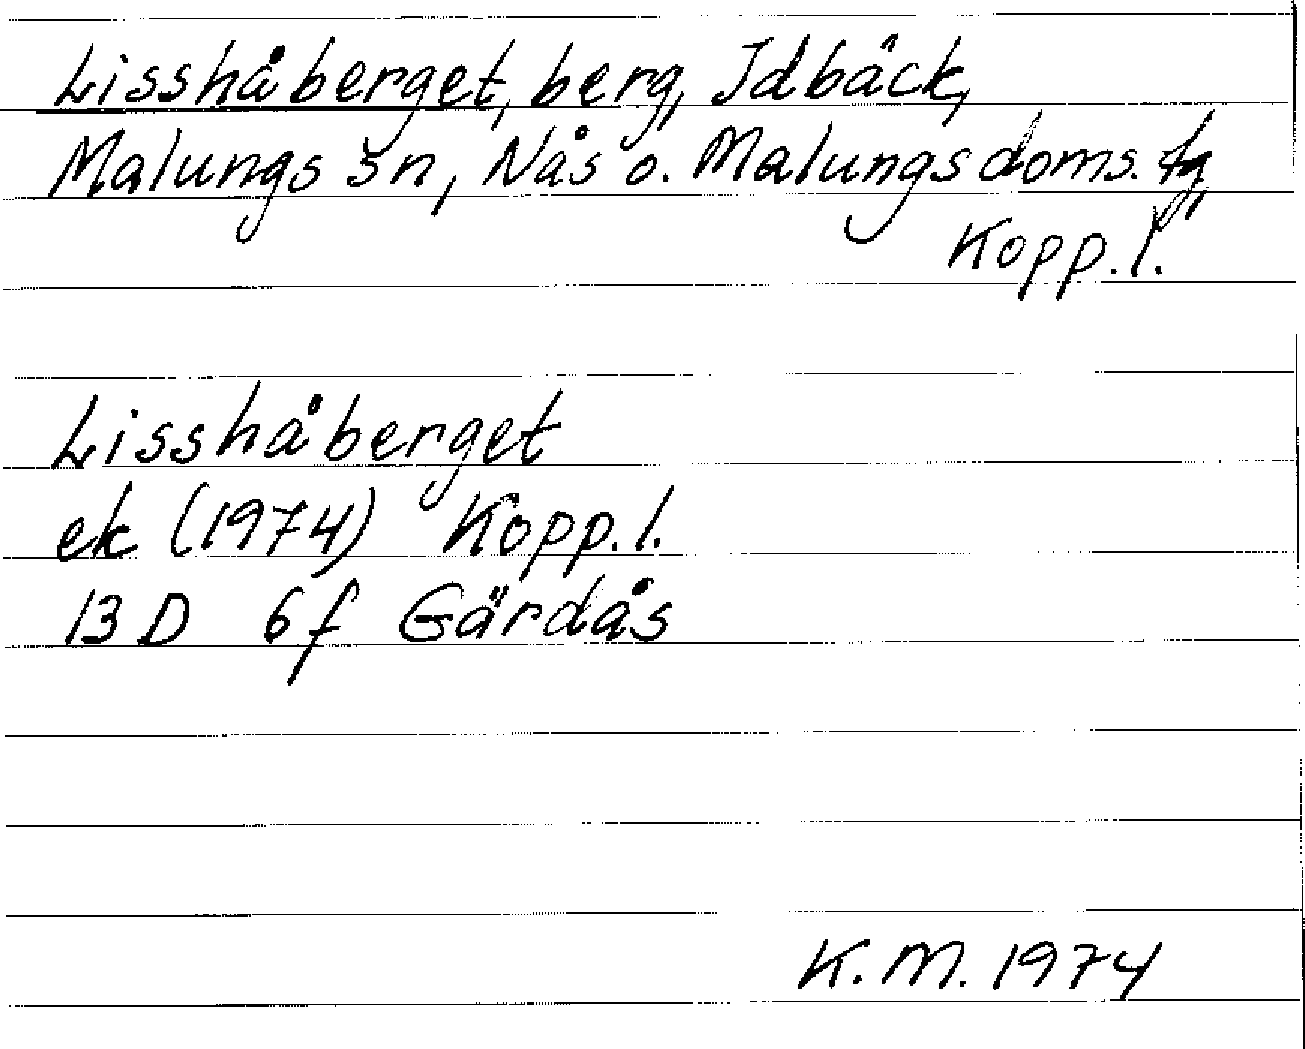 Lisshåberget, berg, Idbäck,
Malungs sn, Nås o. Malungs doms. tg,
Kopp. l.
Lisshåberget
ek (1974) Kopp. l.
13 D 6f Gärdås
K. M. 1974